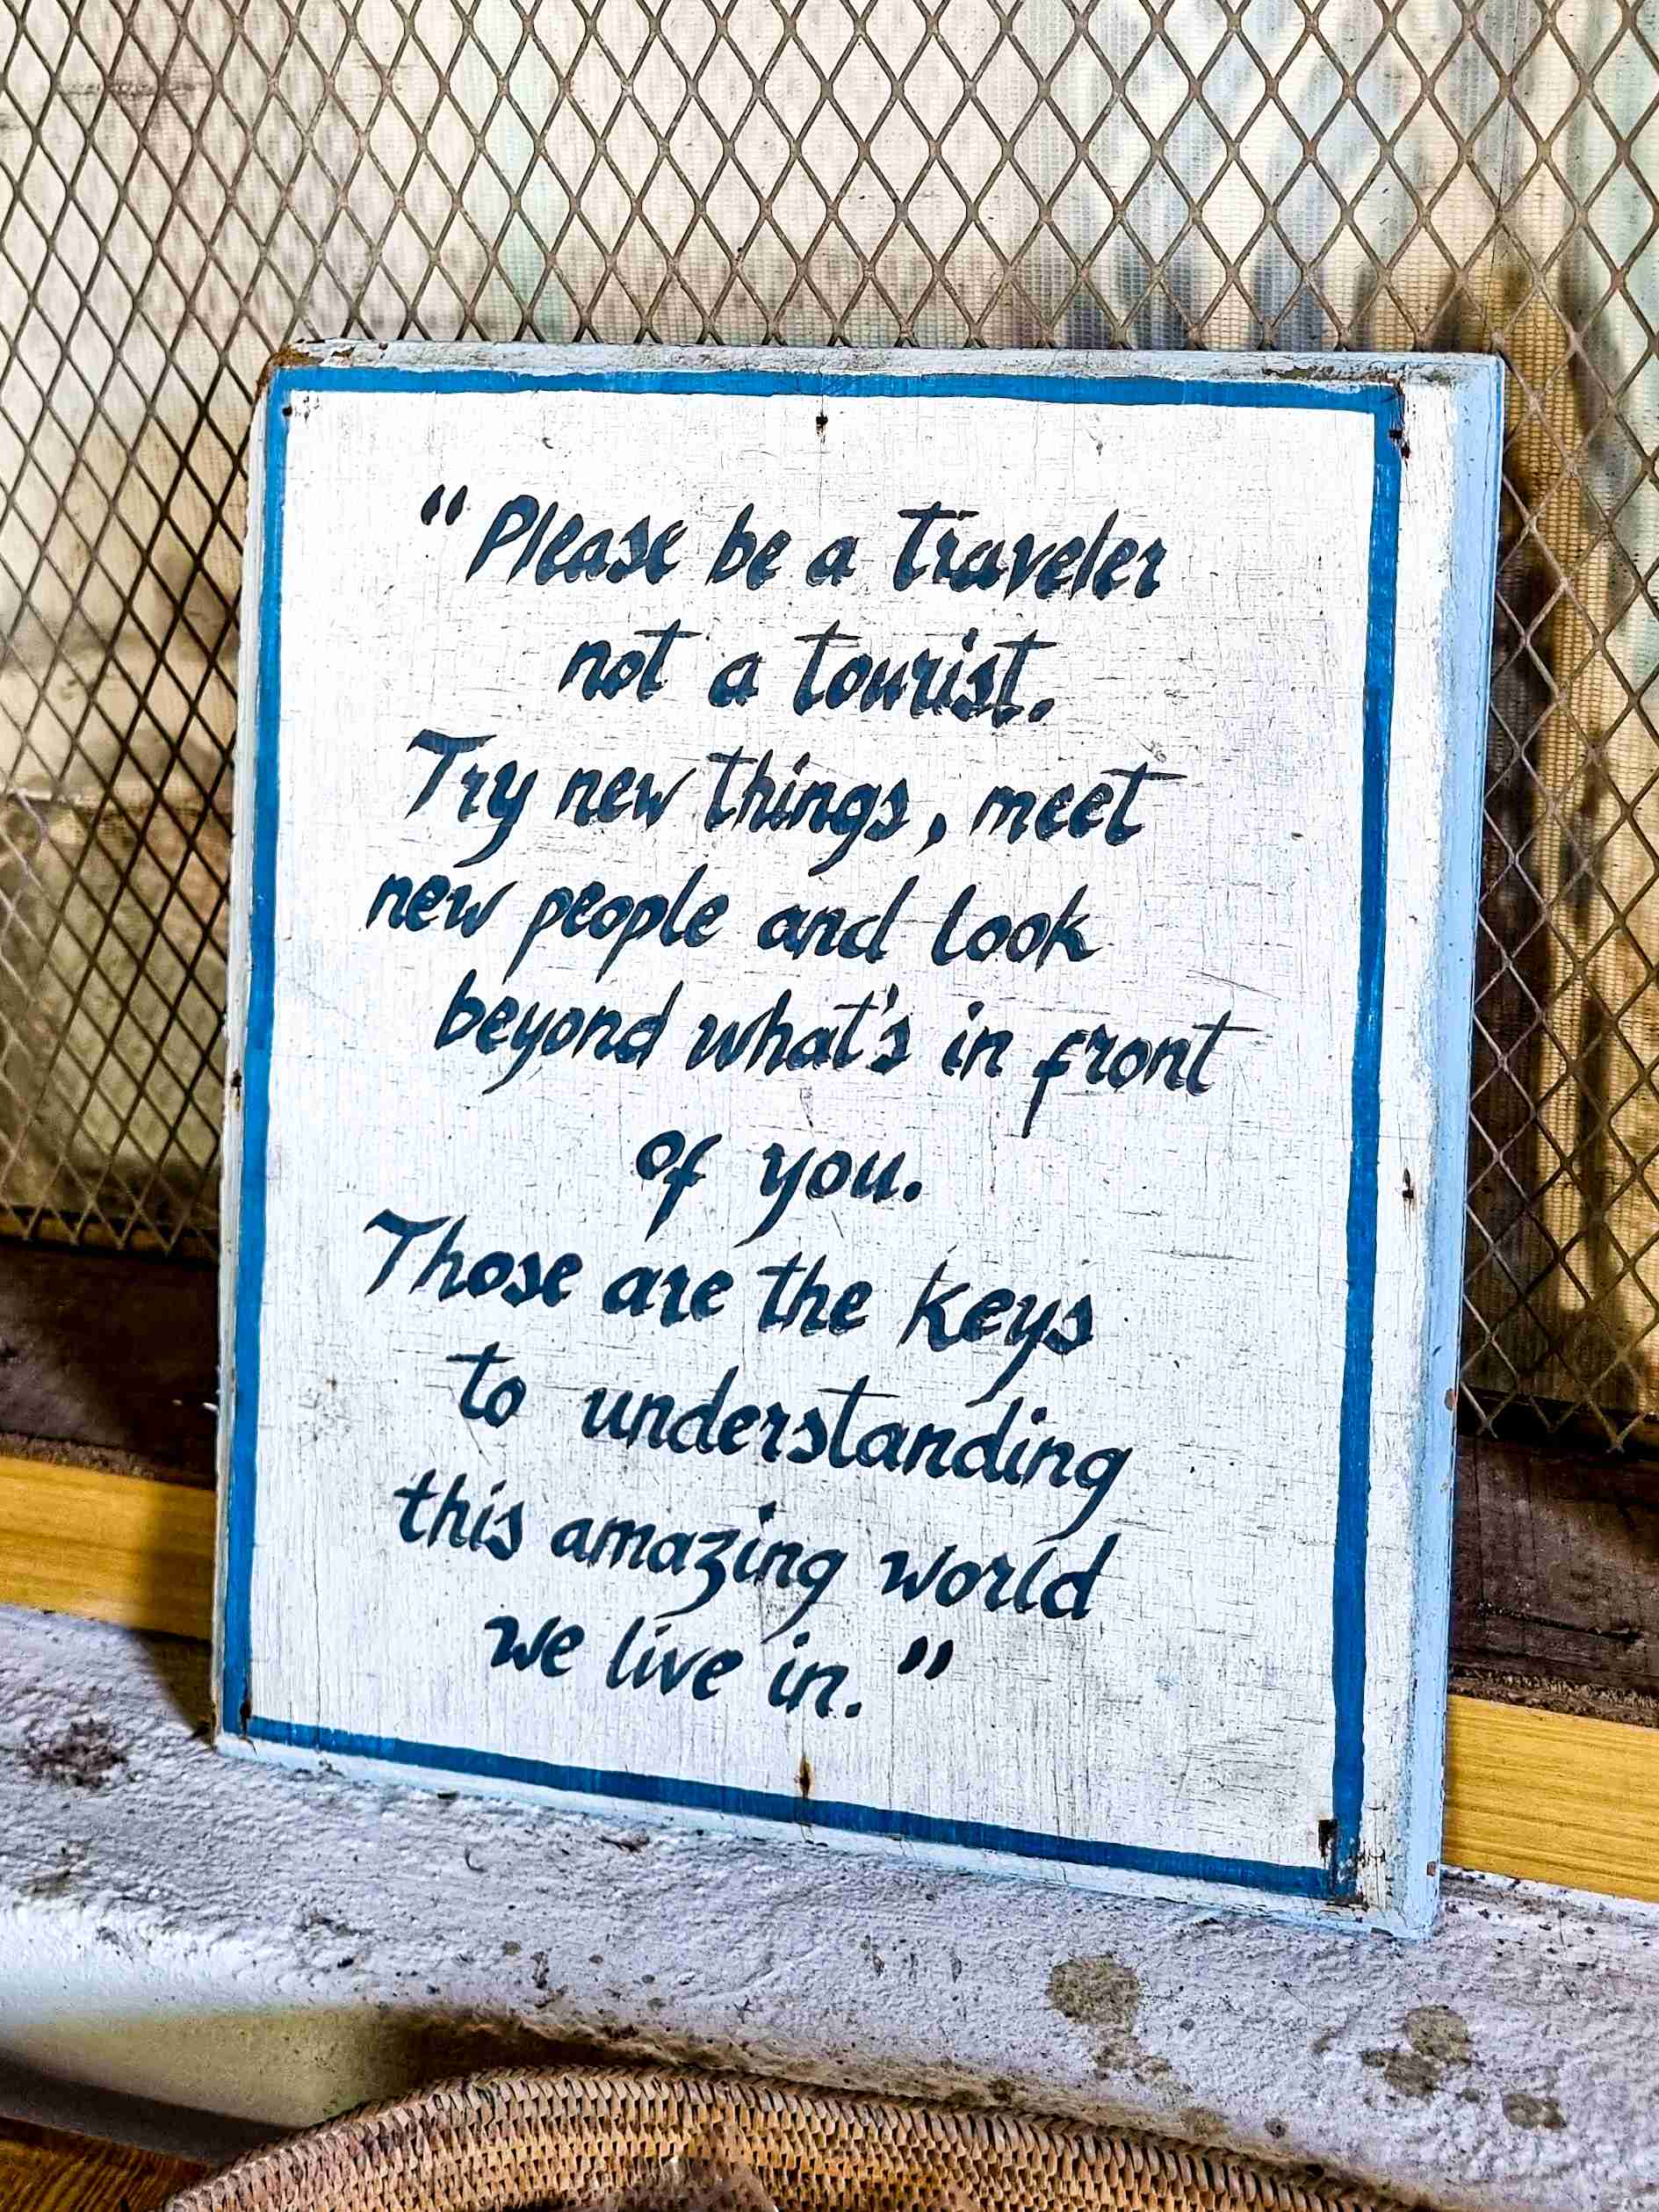 “Please be a traveler
not a tourist.
Try new things, meet
new people and look
beyond what's in front
of you.
Those are the keys
to understanding
this amazing world
we live in.”